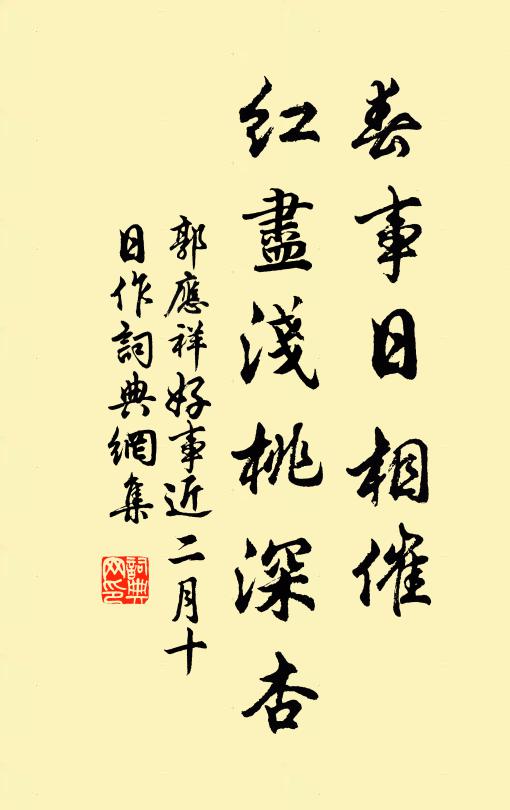 春事日相催
紅盡淺桃深杏
郭應祥好事近二月十
日作詞典網集
詞典
网印